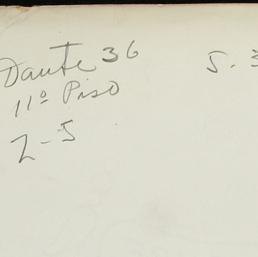 Dante 36
11º Piso
2-5
5.3